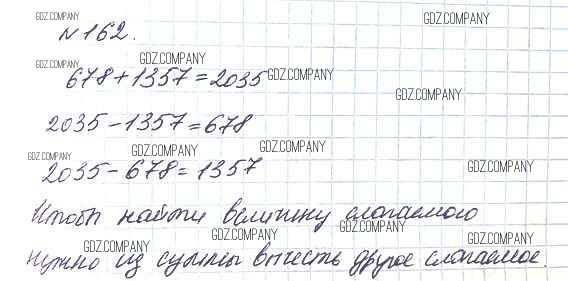 GDZ.COMPANY
GDZ.COMPANY
№162.
GDZ.COMPANY
GDZ.COMPANY
678+1357=2035 GDZ.COMPANY
GDZ.COMPANY
2035-1357=678
GDZ.COMPANY GDZ.COMPANY GDZ.COMPANY
2035-678=1357 GDZ.COMPANY
Чтобы найти величину слагаемого
GDZ.COMPANY GDZ.COMPANY GDZ.COMPANY GDZ.COMPANY
нужно из суммы вычесть другое слагаемое.